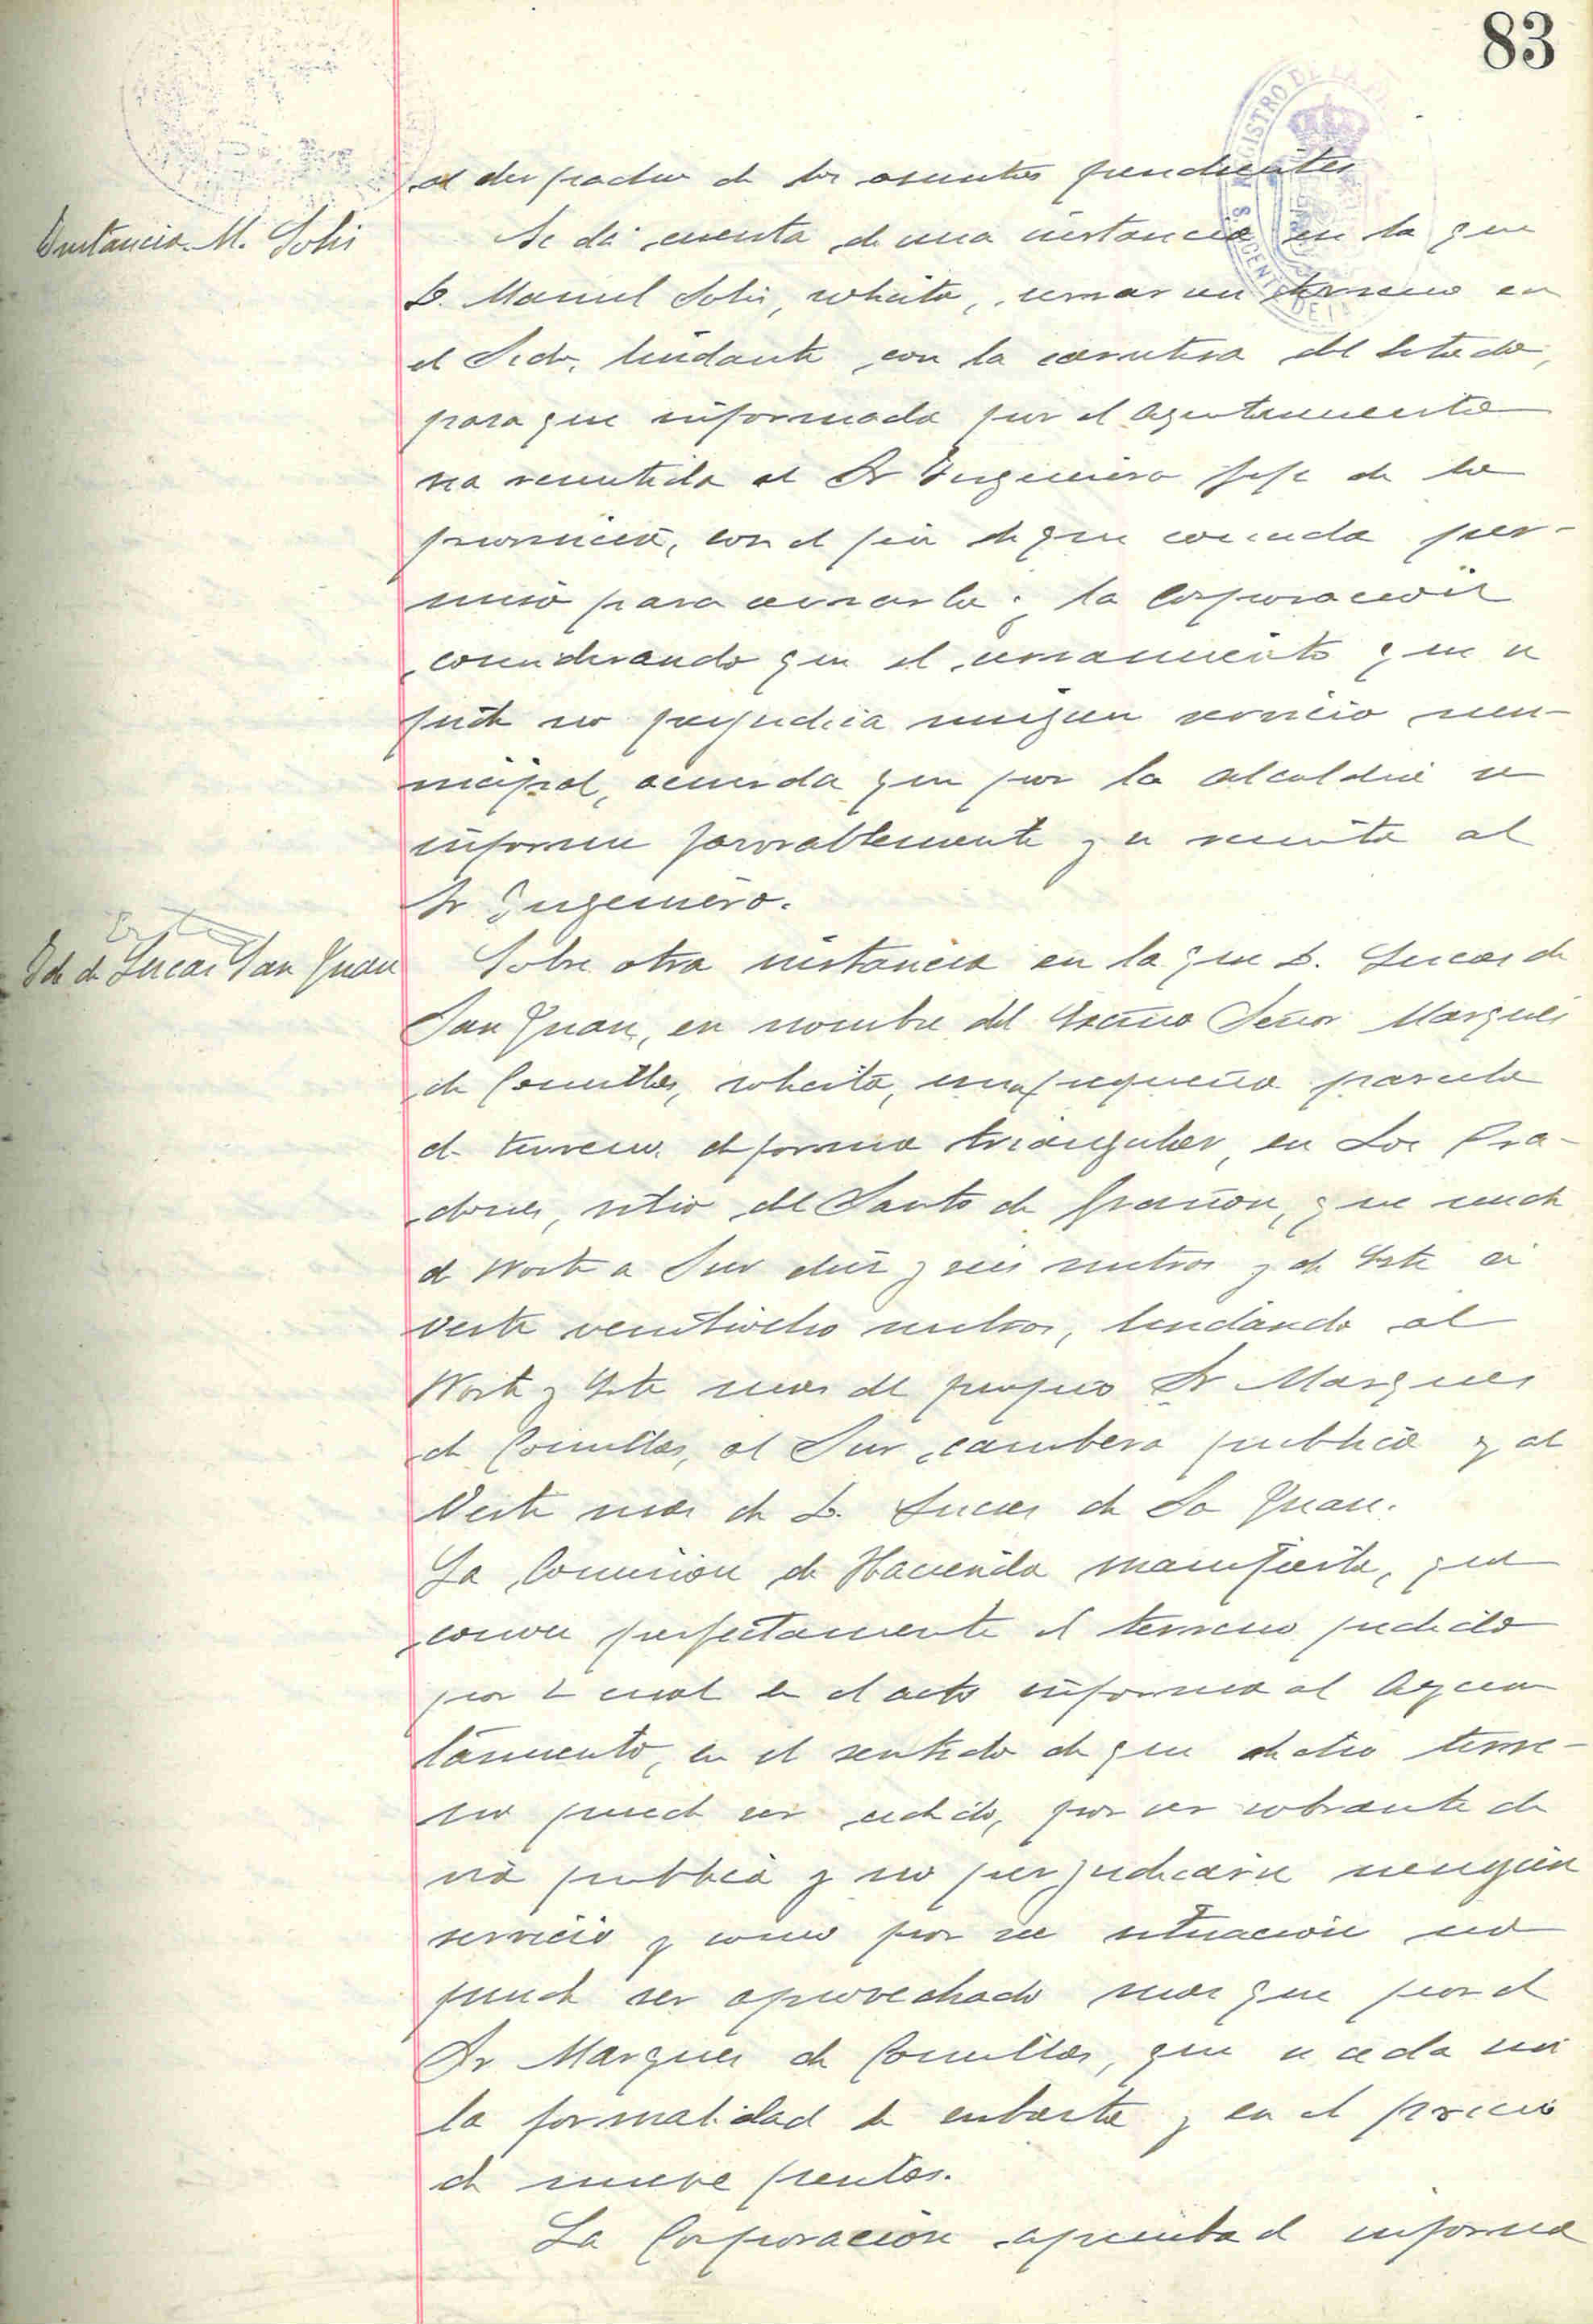 83
al despacho de los asuntos pendientes
Instancia M. Solis
Se dá cuenta de una instancia en la que
D. Manuel Solis, solicita, cerrar un terreno en
el lindante con la carretera del Estado,
para que informada por el Ayuntamiento
sea remitida al Sr Ingeniero Jefe de la
provincia, con el fin de que conceda per-
miso para cerrarlo; la Corporacion
considerando que el cerramiento que se
pide no perjudica ningun servicio mu-
nicipal, acuerda que por la alcaldia se
informe favorablemente y se remita al
Sr Ingeniero.
Id de Lucas San Juan
Sobre otra instancia en la que D. Lucas de
San Juan, en nombre del Excmo Señor Marqués
de Comillas, solicita, una pequeña parcela
de terreno de forma triangular, en Los Pra-
dones, sitio del Santo de Grañon, que mide
de Norte a Sur diez y seis metros y de Este á
Oeste veintiocho metros, lindando al
Norte y Este mas del propio Sr Marques
de Comillas, al Sur cambera publica y al
Oeste mas de D. Lucas de Sn Juan.
La Comision de Hacienda manifiesta, que
conoce perfectamente el terreno pedido
por lo cual en el acto informa al Ayun
tamiento, en el sentido de que dicho terre-
no puede ser cedido, por ser sobrante de
via publica y no perjudicarse ningún
servicio y como por su situacion no
puede ser aprovechado mas que por el
Sr Marques de Comillas, que se ceda sin
la formalidad de subasta y en el precio
de nueve pesetas.
La Corporación aprueba el informe